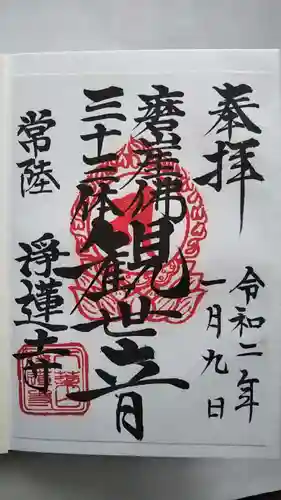 奉拝
令和二年
一月九日
磨崖佛
三十三体
観世音
常陸
淨蓮寺